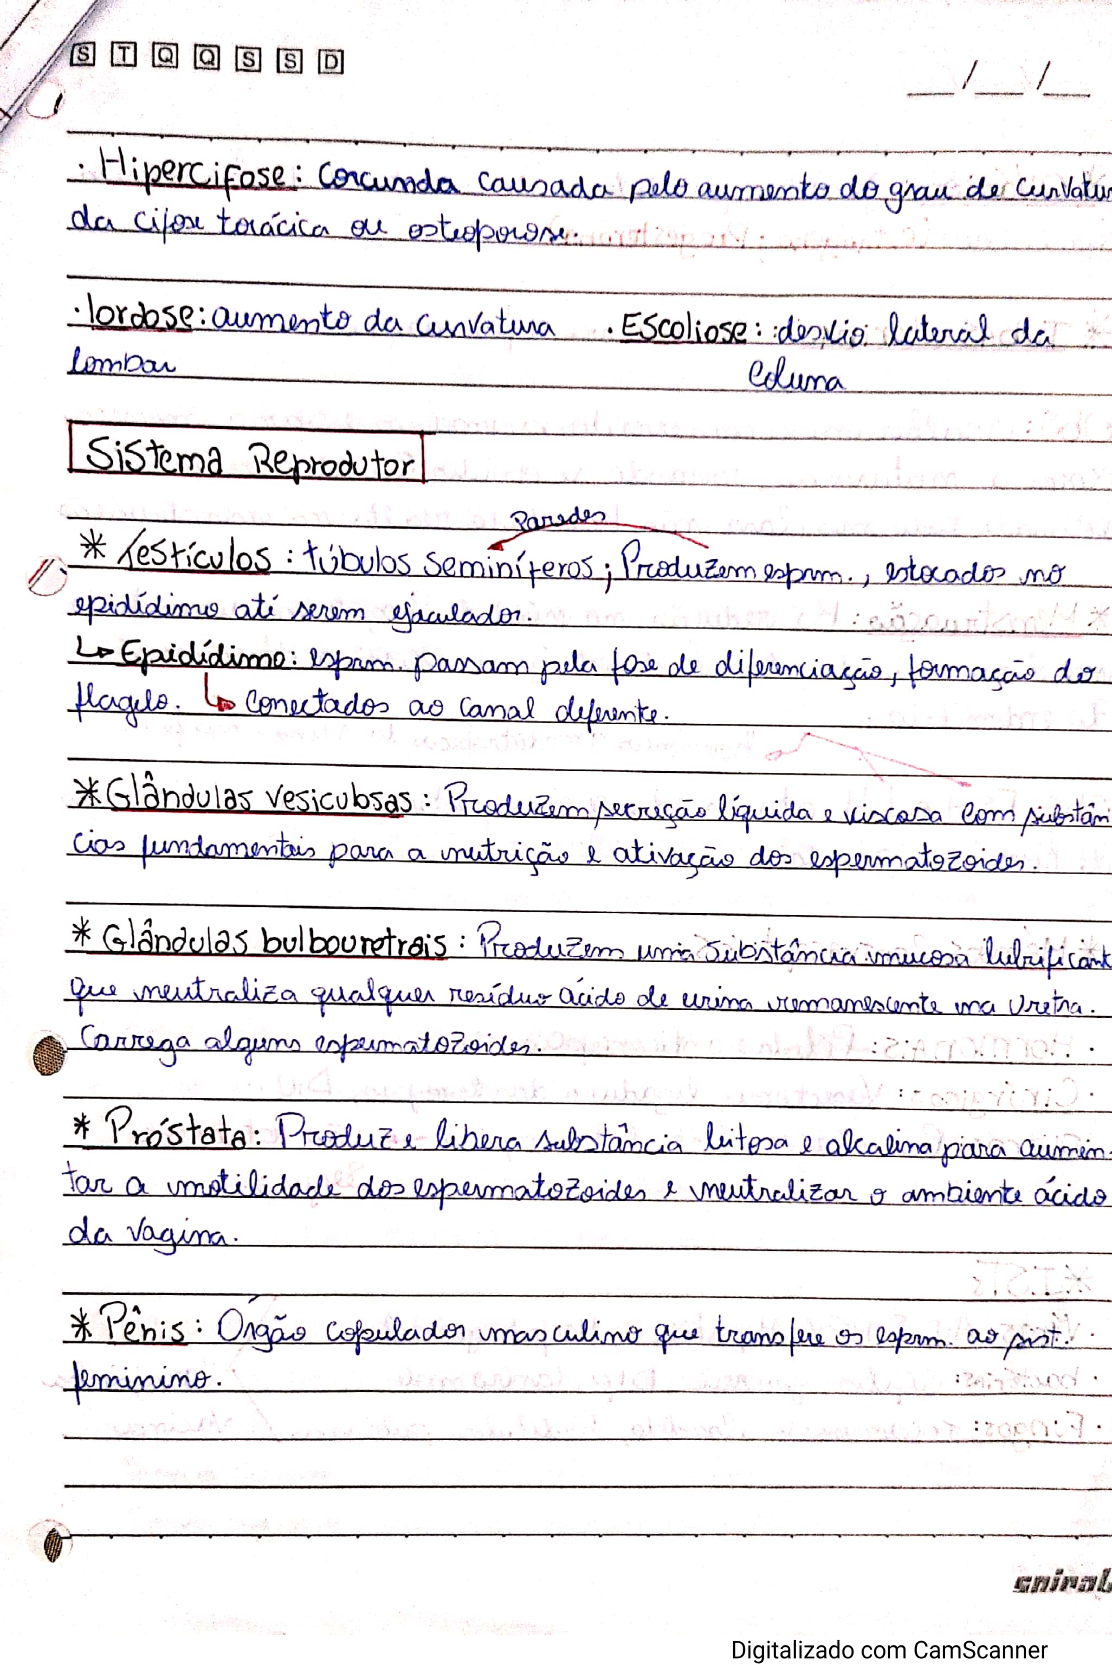 S T Q Q S S D
__/__/__
. Hipercifose: Corcunda causada pelo aumento do grau de curvatur
da cifose torácica ou osteoporose.
. lordose: aumento da curvatura . Escoliose: desvio lateral da
lombar coluna
Sistema Reprodutor
Paredes
* Testículos: túbulos seminíferos; Produzem esprm., estocados no
epidídimo até serem ejaculador.
↳ Epidídimo: esprm. passam pela fase de diferenciação, formação do
flagelo. ↳ conectados ao canal deferente.
* Glândulas vesiculosas: Produzem secreção líquida e viscosa com substân
cias fundamentais para a nutrição e ativação dos espermatozoides.
* Glândulas bulbouretrais: Produzem uma substância mucosa lubrificant
que neutraliza qualquer resíduo ácido de urina remanescente na uretra.
Carrega alguns espermatozoides.
* Próstata: Produz e libera substância leitosa e alcalina para aumen-
tar a motilidade dos espermatozoides e neutralizar o ambiente ácido
da vagina.
* Pênis: Órgão copulador masculino que transfere os esprm. ao sist.
feminino.
spiral
Digitalizado com CamScanner